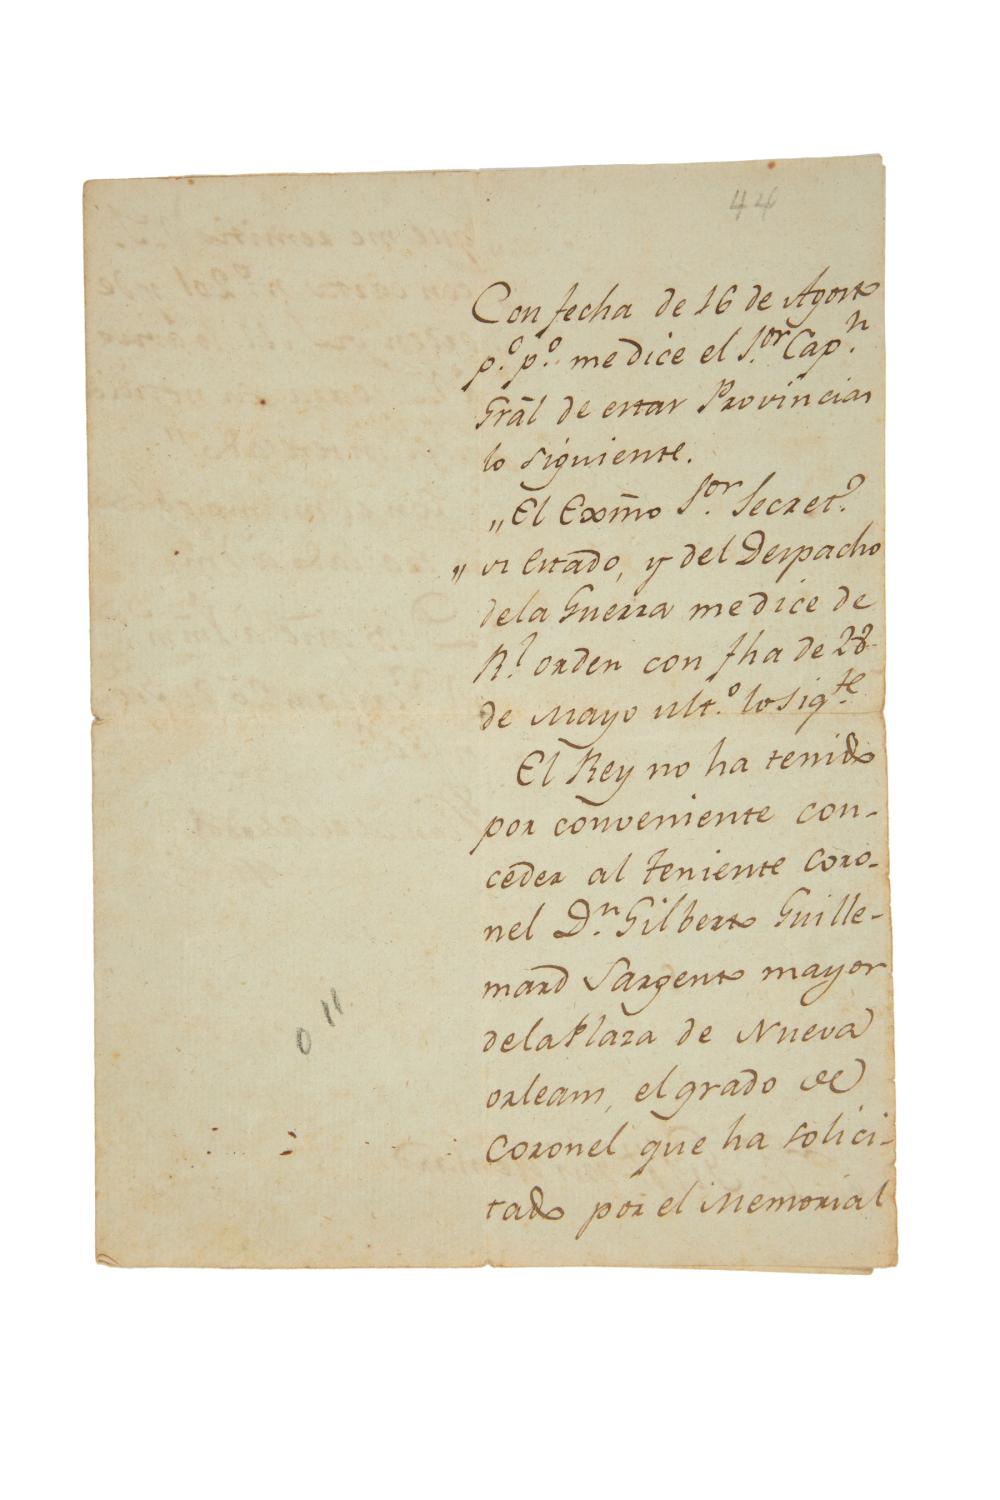 44
Con fecha de 16 de Agosto
p.º p.º me dice el S.or Cap.n
Grãl de estas Provincias
lo siguiente.
„El Exm̃o S.or Secret.º
„ de Estado, y del Despacho
de la Guerra me dice de
R.l orden con fha de 28
de Mayo ult.º lo sig.te
El Rey no ha tenido
por conveniente con-
ceder al Teniente Coro-
nel D.n Gilberto Guille-
mard Sargento mayor
de la Plaza de Nueva
orleans, el grado de
Coronel que ha solici-
tado por el Memorial